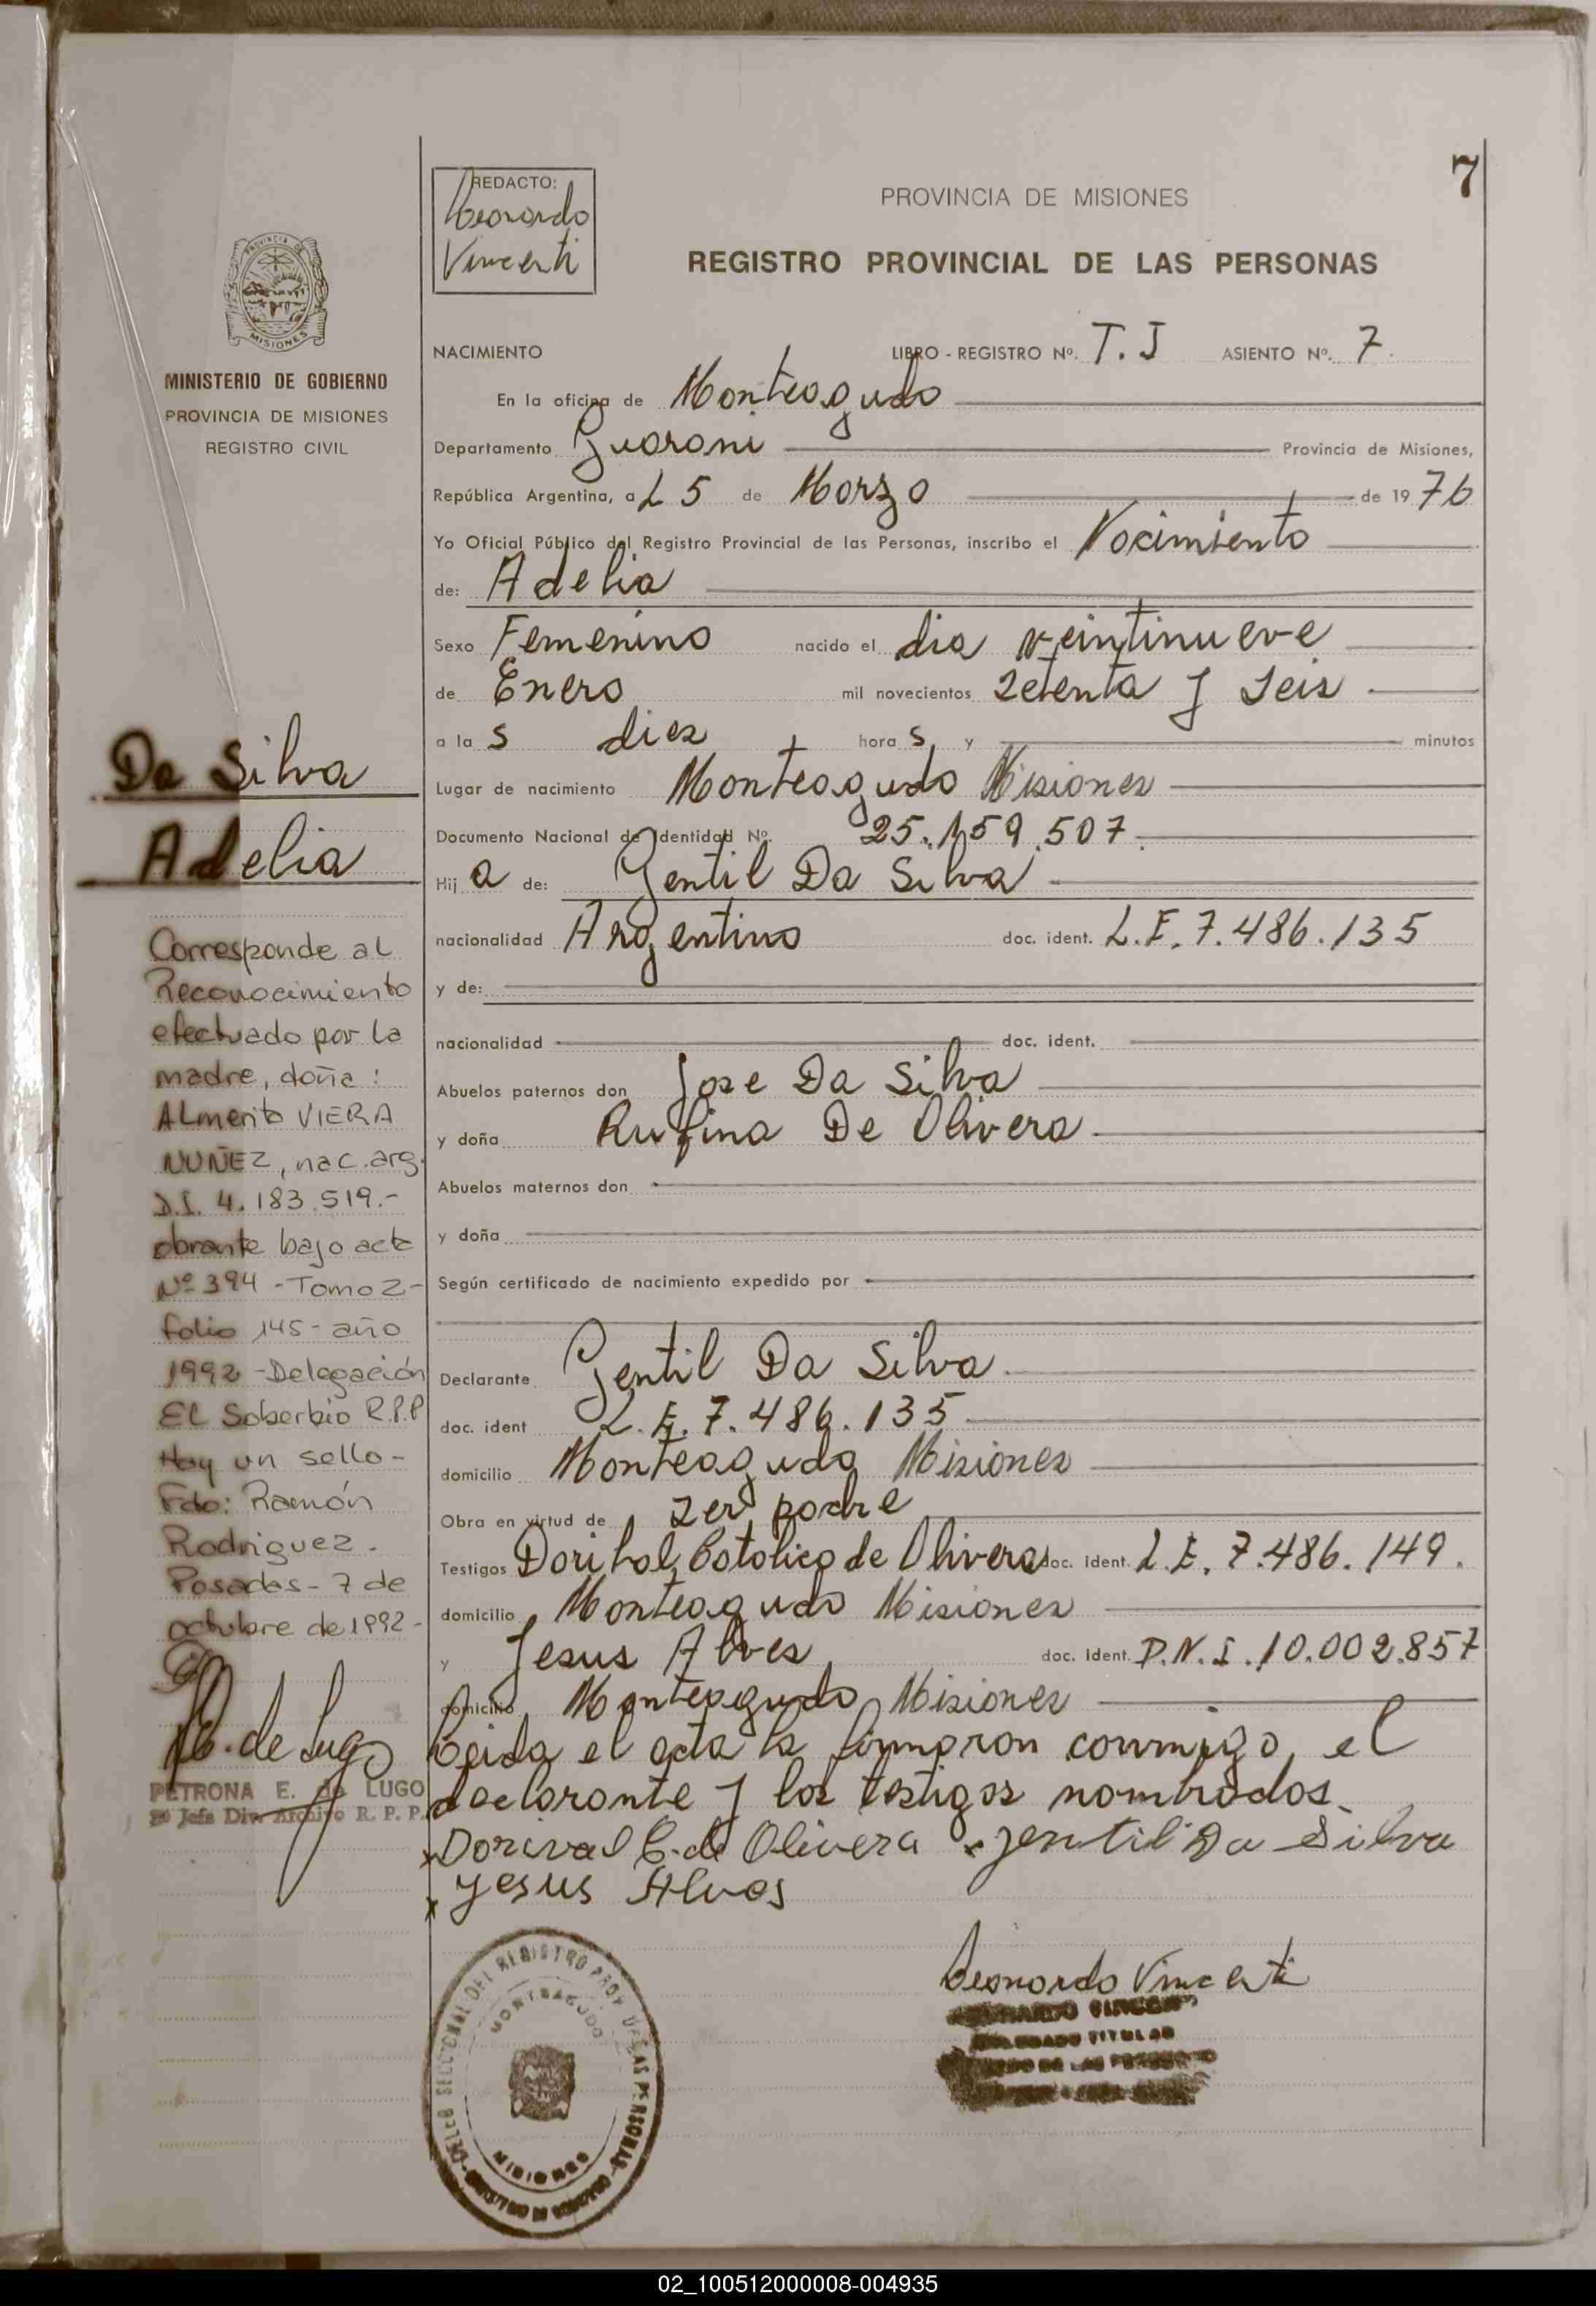 7
REDACTO:
Leonardo
Vincenti
PROVINCIA DE MISIONES
REGISTRO PROVINCIAL DE LAS PERSONAS
PROVINCIA DE
MISIONES
MINISTERIO DE GOBIERNO
PROVINCIA DE MISIONES
REGISTRO CIVIL
NACIMIENTO LIBRO - REGISTRO Nº. T.I ASIENTO Nº. 7.
En la oficina de Monteagudo
Departamento Guarani Provincia de Misiones,
República Argentina, a 25 de Marzo de 19 76
Yo Oficial Público del Registro Provincial de las Personas, inscribo el Nacimiento
de: Adelia
Sexo Femenino nacido el dia veintinueve
de Enero mil novecientos setenta y seis
a la s diez hora s, y minutos
Lugar de nacimiento Monteagudo Misiones
Documento Nacional de Identidad Nº. 25.159.507.
Hij a de: Gentil Da Silva
nacionalidad Argentino doc. ident. L.E. 7.486.135
y de:
nacionalidad doc. ident.
Abuelos paternos don Jose Da Silva
y doña Rufina De Olivera
Abuelos maternos don
y doña
Según certificado de nacimiento expedido por
Declarante Gentil Da Silva
doc. ident L.E. 7.486.135
domicilio Monteagudo Misiones
Obra en virtud de ser padre
Testigos Doribal Catolico de Olivera doc. ident. L.E. 7.486.149.
domicilio Monteagudo Misiones
y Jesus Alves doc. ident. D.N.I. 10.002.857
domicilio Monteagudo Misiones
Leida el acta la firmaron conmigo, el
declarante y los testigos nombrados.
Dorival C. de Olivera Gentil Da Silva
Jesus Alves
Da Silva
Adelia
Corresponde al
Reconocimiento
efectuado por la
madre, doña:
ALmerita VIERA
NUÑEZ, nac. arg.
D.I. 4.183.519.-
obrante bajo acta
Nº 394 - Tomo 2 -
folio 145 - año
1992 - Delegación
EL Soberbio R.P.P
Hay un sello -
Fdo: Ramón
Rodriguez.
Posadas - 7 de
octubre de 1992 -
de Lugo
PETRONA E. de LUGO
Jefa Div. Archivo R. P. P.
Leonardo Vincenti
MONTEAGUDO
MISIONES
02_100512000008-004935